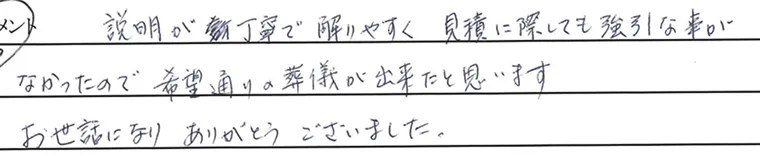 メント 説明が丁寧で解りやすく 見積に際しても強引な事が
なかったので 希望通りの葬儀が出来たと思います
お世話になり ありがとう ございました。